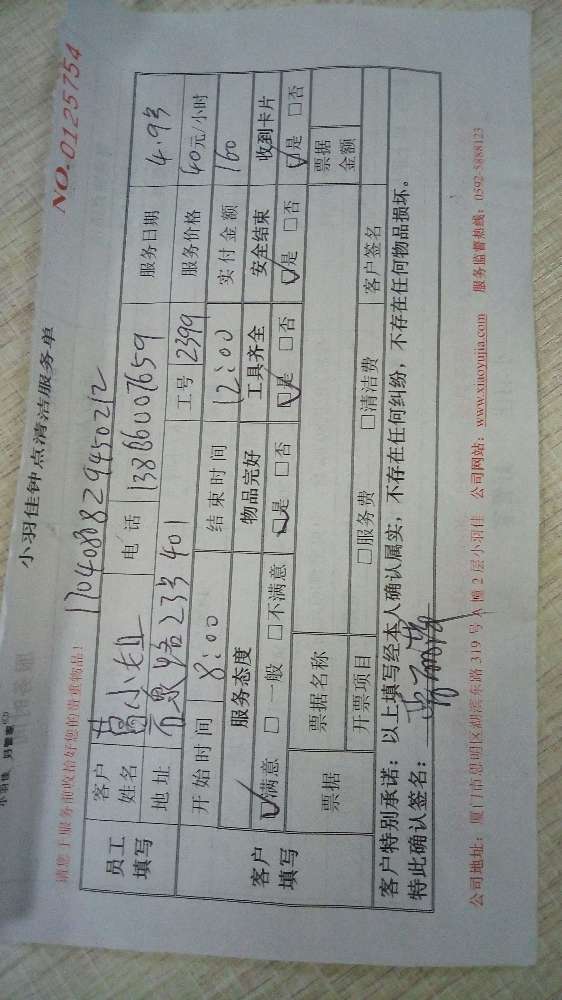 小羽佳钟点清洁服务单
NO.0125754
请您于服务前收拾好您的贵重物品!
1704088829450212
员工填写 客户姓名 电话 13866007659 服务日期 4.9号
地址 23号401 工号 2399 服务价格 40元/小时
开始时间 8:00 结束时间 12:00 实付金额 160
客户填写 服务态度 物品完好 工具齐全 安全结束 收到卡片
☑满意 □一般 □不满意 ☑是 □否 ☑是 □否 ☑是 □否 ☑是 □否
票据 票据名称 票据金额
开票项目 □服务费 □清洁费 客户签名
客户特别承诺：以上填写经本人确认属实，不存在任何纠纷，不存在任何物品损坏。
特此确认签名：
公司地址：厦门市思明区湖滨东路319号A幢2层小羽佳 公司网站：www.xiaoyujia.com 服务监督热线：0592-5888123